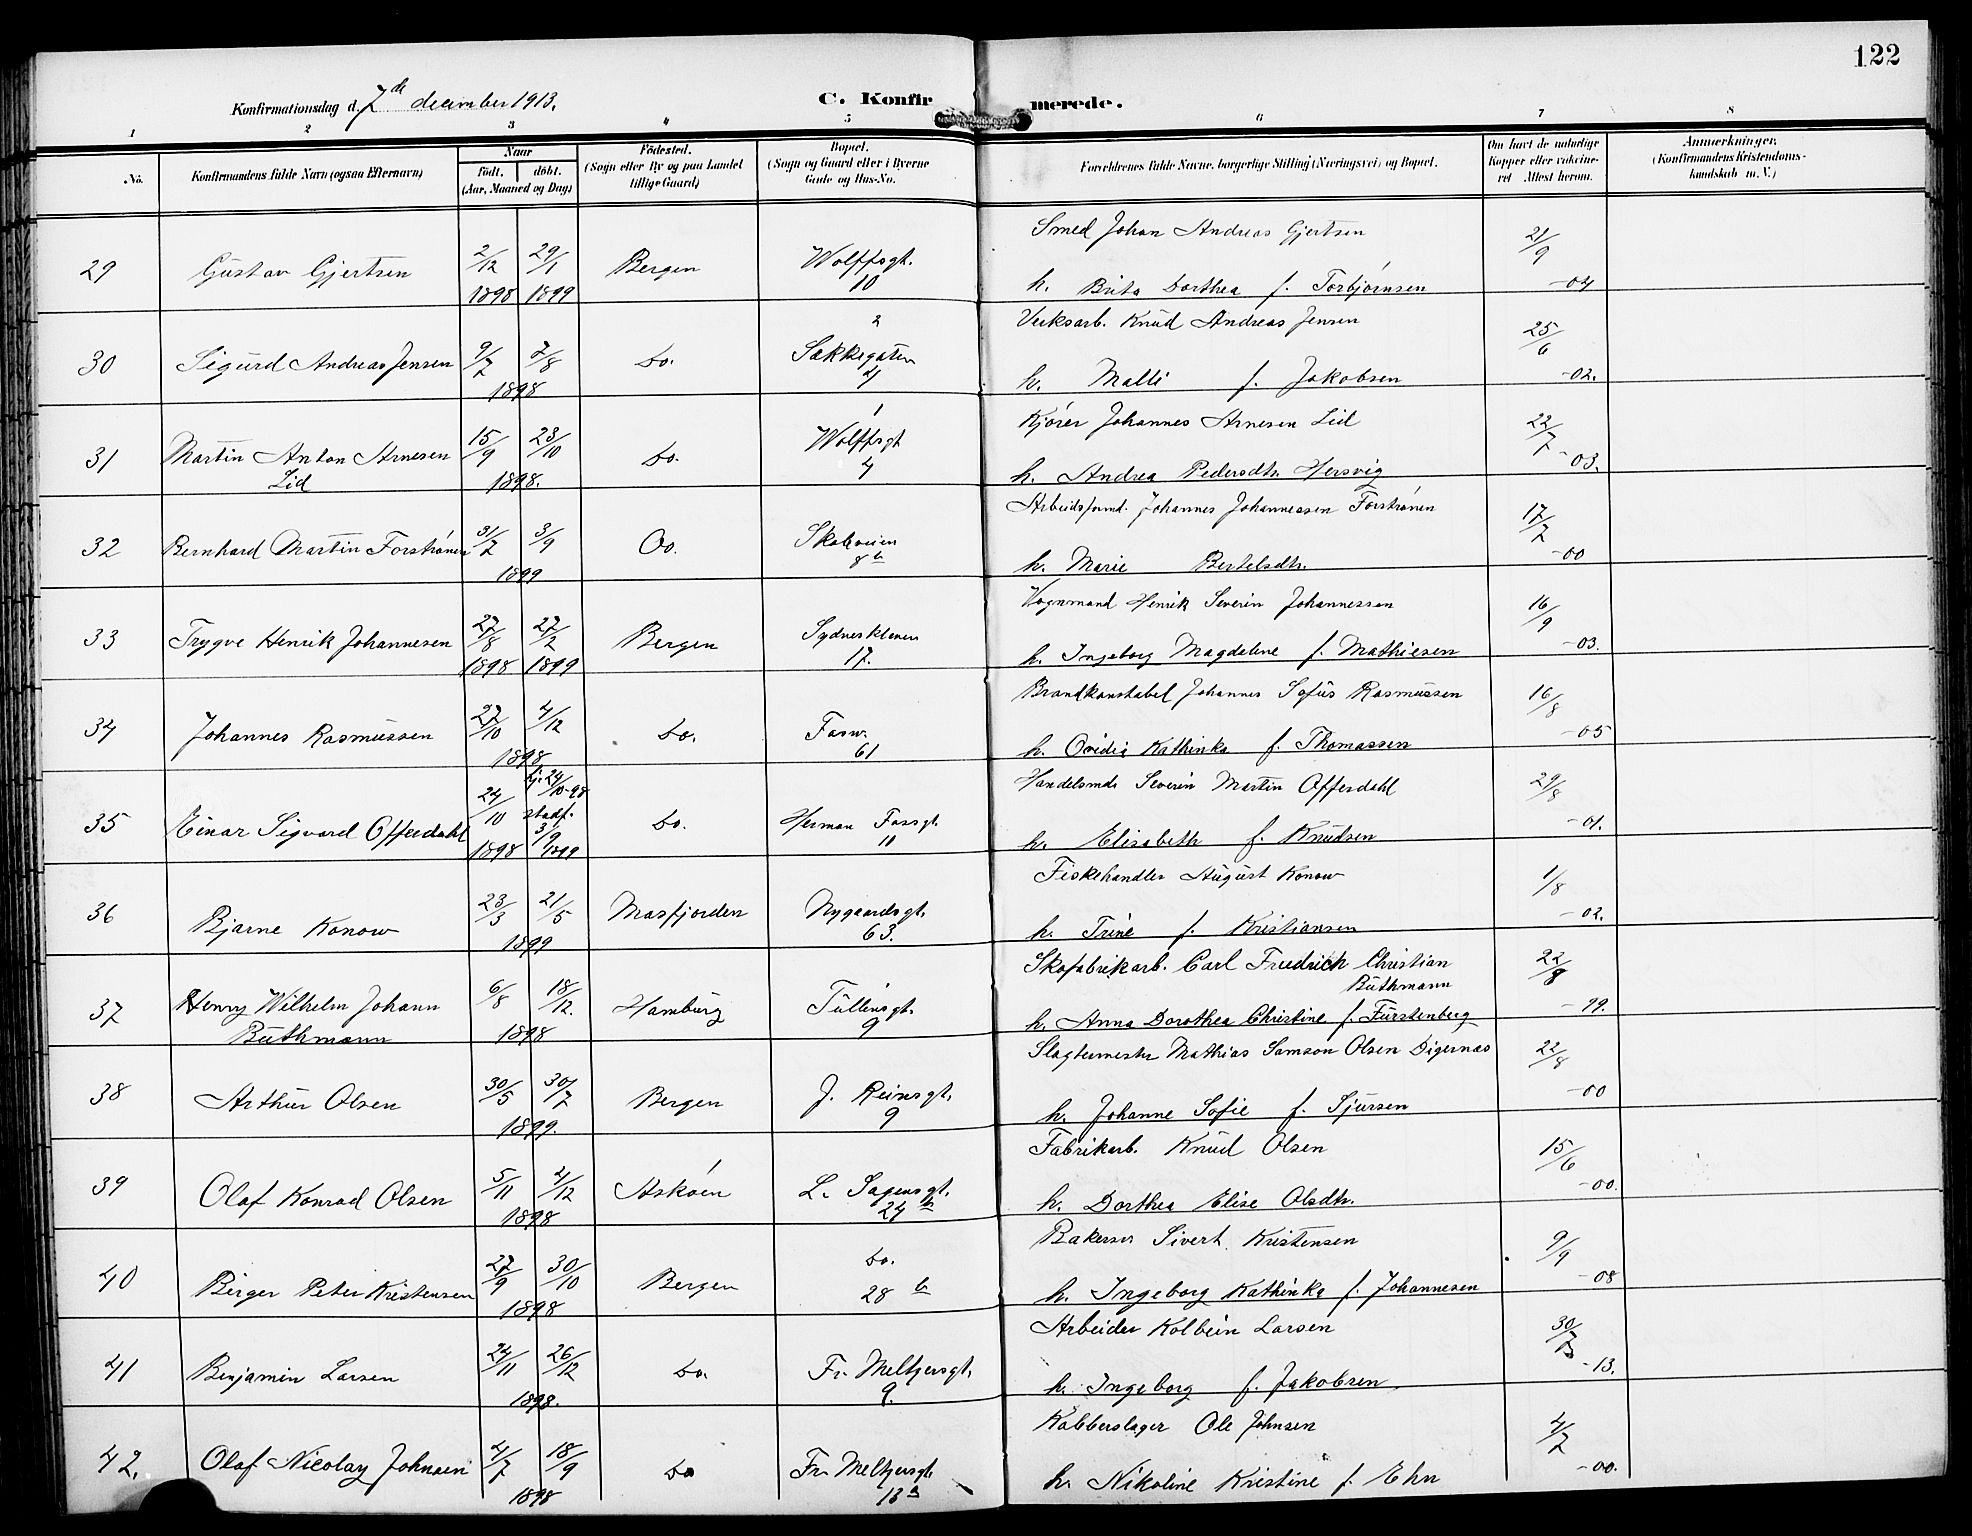 122
Konfirmationsdag d. 7de december 1913.
C. Konfirmerede.
1 2 3 4 5 6 7 8
No.
Konfirmandens fulde Navn (ogsaa Efternavn)
Naar
født. døbt.
(Aar, Maaned og Dag)
Fødested.
(Sogn eller By og paa Landet
tillige Gaard)
Bopæl.
(Sogn og Gaard eller i Byerne
Gade og Hus-No.
Forældrenes fulde Navne, borgerlige Stilling (Næringsvei) og Bopæl.
Om havt de naturlige
Kopper eller vakcine-
ret Attest herom.
Anmerkninger.
(Konfirmandens Kristendoms-
kundskab m. V.)
29 Gustav Gjertsen 2/12 1898 29/1 1899 Bergen Wolffsgt. 10
Smed Johan Andreas Gjertsen 21/9
h. Brita Dorthea f. Torbjørnsen -04
30 Sigurd Andreas Jensen 9/7 7/8 1898 do. 2 Sækkegaten 4
Verksarb. Knud Andreas Jensen 25/6
h. Malli f. Jakobsen -02.
31 Martin Anton Arnesen Lid 15/9 23/10 1898. do. Wolffsgt 4
Kjører Johannes Arnesen Lid 22/7
h. Andrea Pedersdtr. Hersvig -03.
32 Bernhard Martin Forstrønen 31/7 3/9 1899 Do. Skoleveien 8b
Arbeidsformd. Johannes Johannessen Forstrønen 17/7
h. Marie Bertelsdtr. -00
33 Trygve Henrik Johannesen 27/8 1898 27/2 1899 Bergen Sydneskleven 17.
Vognmand Henrik Severin Johannessen 16/9
h. Ingeborg Magdeline f. Mathiesen -03.
34 Johannes Rasmussen 27/10 4/12 1898 do. Fosw. 61
Brandkonstabel Johannes Sofus Rasmussen 16/8
h. Ovidia Kathinka f. Thomassen -05
35 Einar Sigvard Offerdahl 24/10 1898 hj. 24/10-98 stadf. 3/9 1899 do. Herman Fossgt. 11
Handelsmd. Severin Martin Offerdahl 29/8
h. Elisabeth f. Knudsen -01.
36 Bjarne Konow 23/3 21/5 1899 Masfjorden Nygaardsgt. 63.
Fiskehandler August Konow 1/8
h. Trine f. Kristiansen -02.
37 Henry Wilhelm Johann Büthmann 6/8 18/12. 1898 Hamburg Tullinsgt. 9
Skofabrikarb. Carl Friedrich Christian Büthmann 22/8
h. Anna Dorothea Christine f. Fürstenberg -99.
38 Arthur Olsen 30/5 30/7 1899. Bergen J. Reinsgt. 9
Slagtermester Mathias Samson Olsen Digernæs 22/8
h. Johanne Sofie f. Sjursen -00
39 Olaf Konrad Olsen 5/11 4/12 1898 Askøen L. Sagensgt. 24b
Fabrikarb. Knud Olsen 15/6
h. Dorthea Elise Olsdtr. -00.
40 Birger Peter Kristensen 27/9 30/10 1898 Bergen do. 28b
Bakersv. Sivert Kristensen 9/9
h. Ingeborg Kathinka f. Johannesen -08
41 Benjamin Larsen 24/11 26/12 1898. do. Fr. Meltzersgt. 9.
Arbeider Kolbein Larsen 30/7
h. Ingeborg f. Jakobsen -13.
42. Olaf Nicolay Johnsen 4/7 18/9 1898 do Fr. Meltzersgt. 13a
Kobberslager Ole Johnsen 4/7
h. Nikoline Kristine f. Ehn -00.